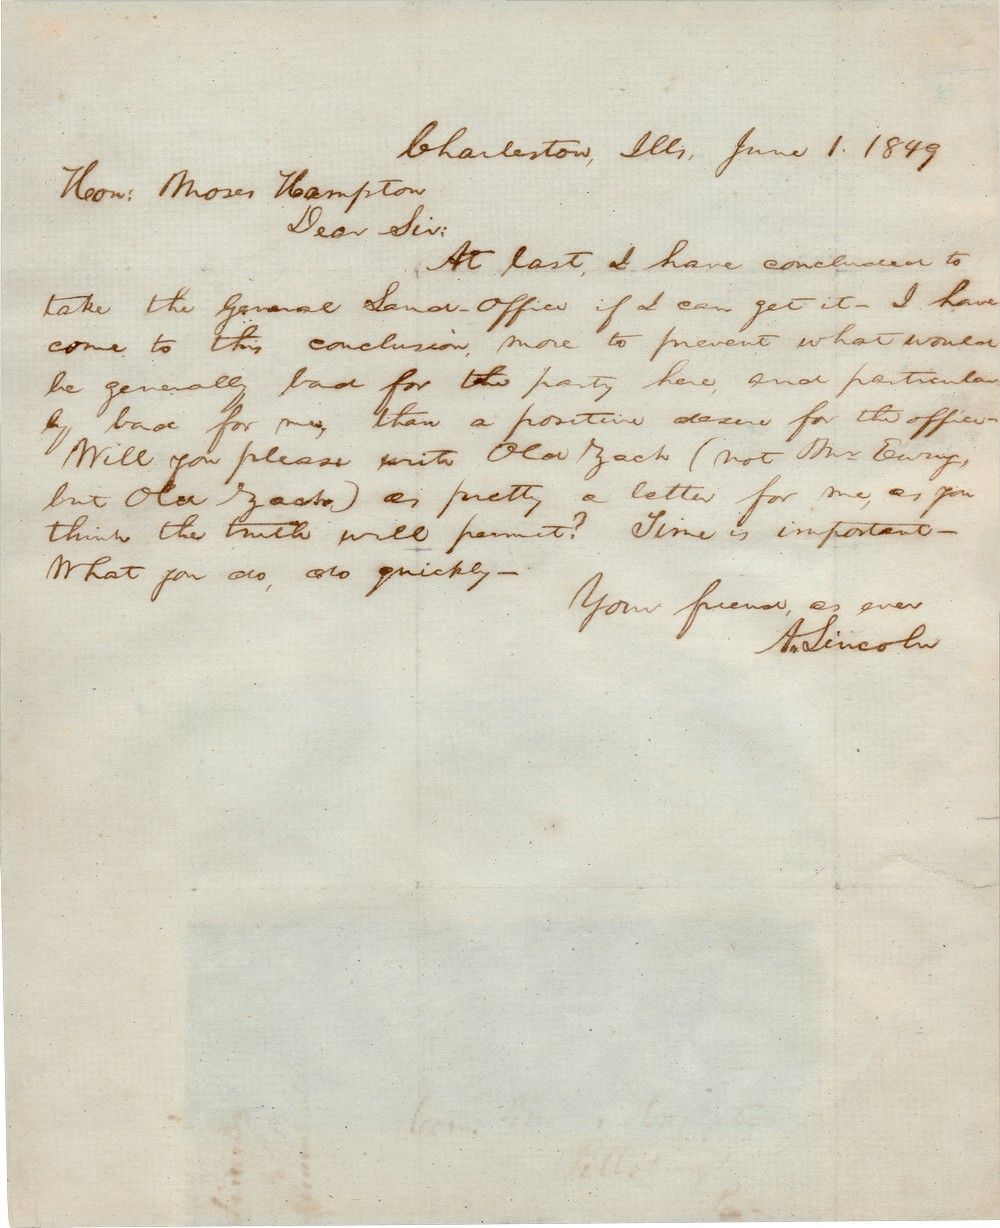 Charleston, Ills, June 1. 1849
Hon: Moses Hampton
Dear Sir:
At last, I have concluded to
take the General Land-Office if I can get it- I have
come to this conclusion, more to prevent what would
be generally bad for the party here, and particular
ly bad for me, than a positive desire for the office-
Will you please write Old Zach (not Mr Ewing,
but Old Zach) as pretty a letter for me, as you
think the truth will permit? Time is important-
What you do, do quickly-
Your friend, as ever
A. Lincoln